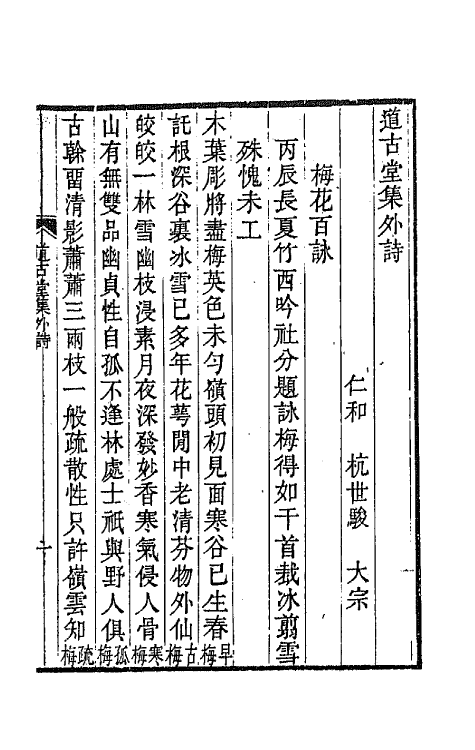 道古堂集外詩
仁和　杭世駿　大宗
梅花百詠
丙辰長夏竹西吟社分題詠梅得如干首裁冰翦雪
殊愧未工
木葉彫將盡梅英色未勻嶺頭初見面寒谷已生春早梅
託根深谷裏冰雪已多年花萼閒中老清芬物外仙古梅
皎皎一林雪幽枝浸素月夜深發妙香寒氣侵人骨寒梅
山有無雙品幽貞性自孤不逢林處士祇與野人俱孤梅
古榦畱清影蕭蕭三兩枝一般疏散性只許嶺雲知疏梅
道古堂集外詩